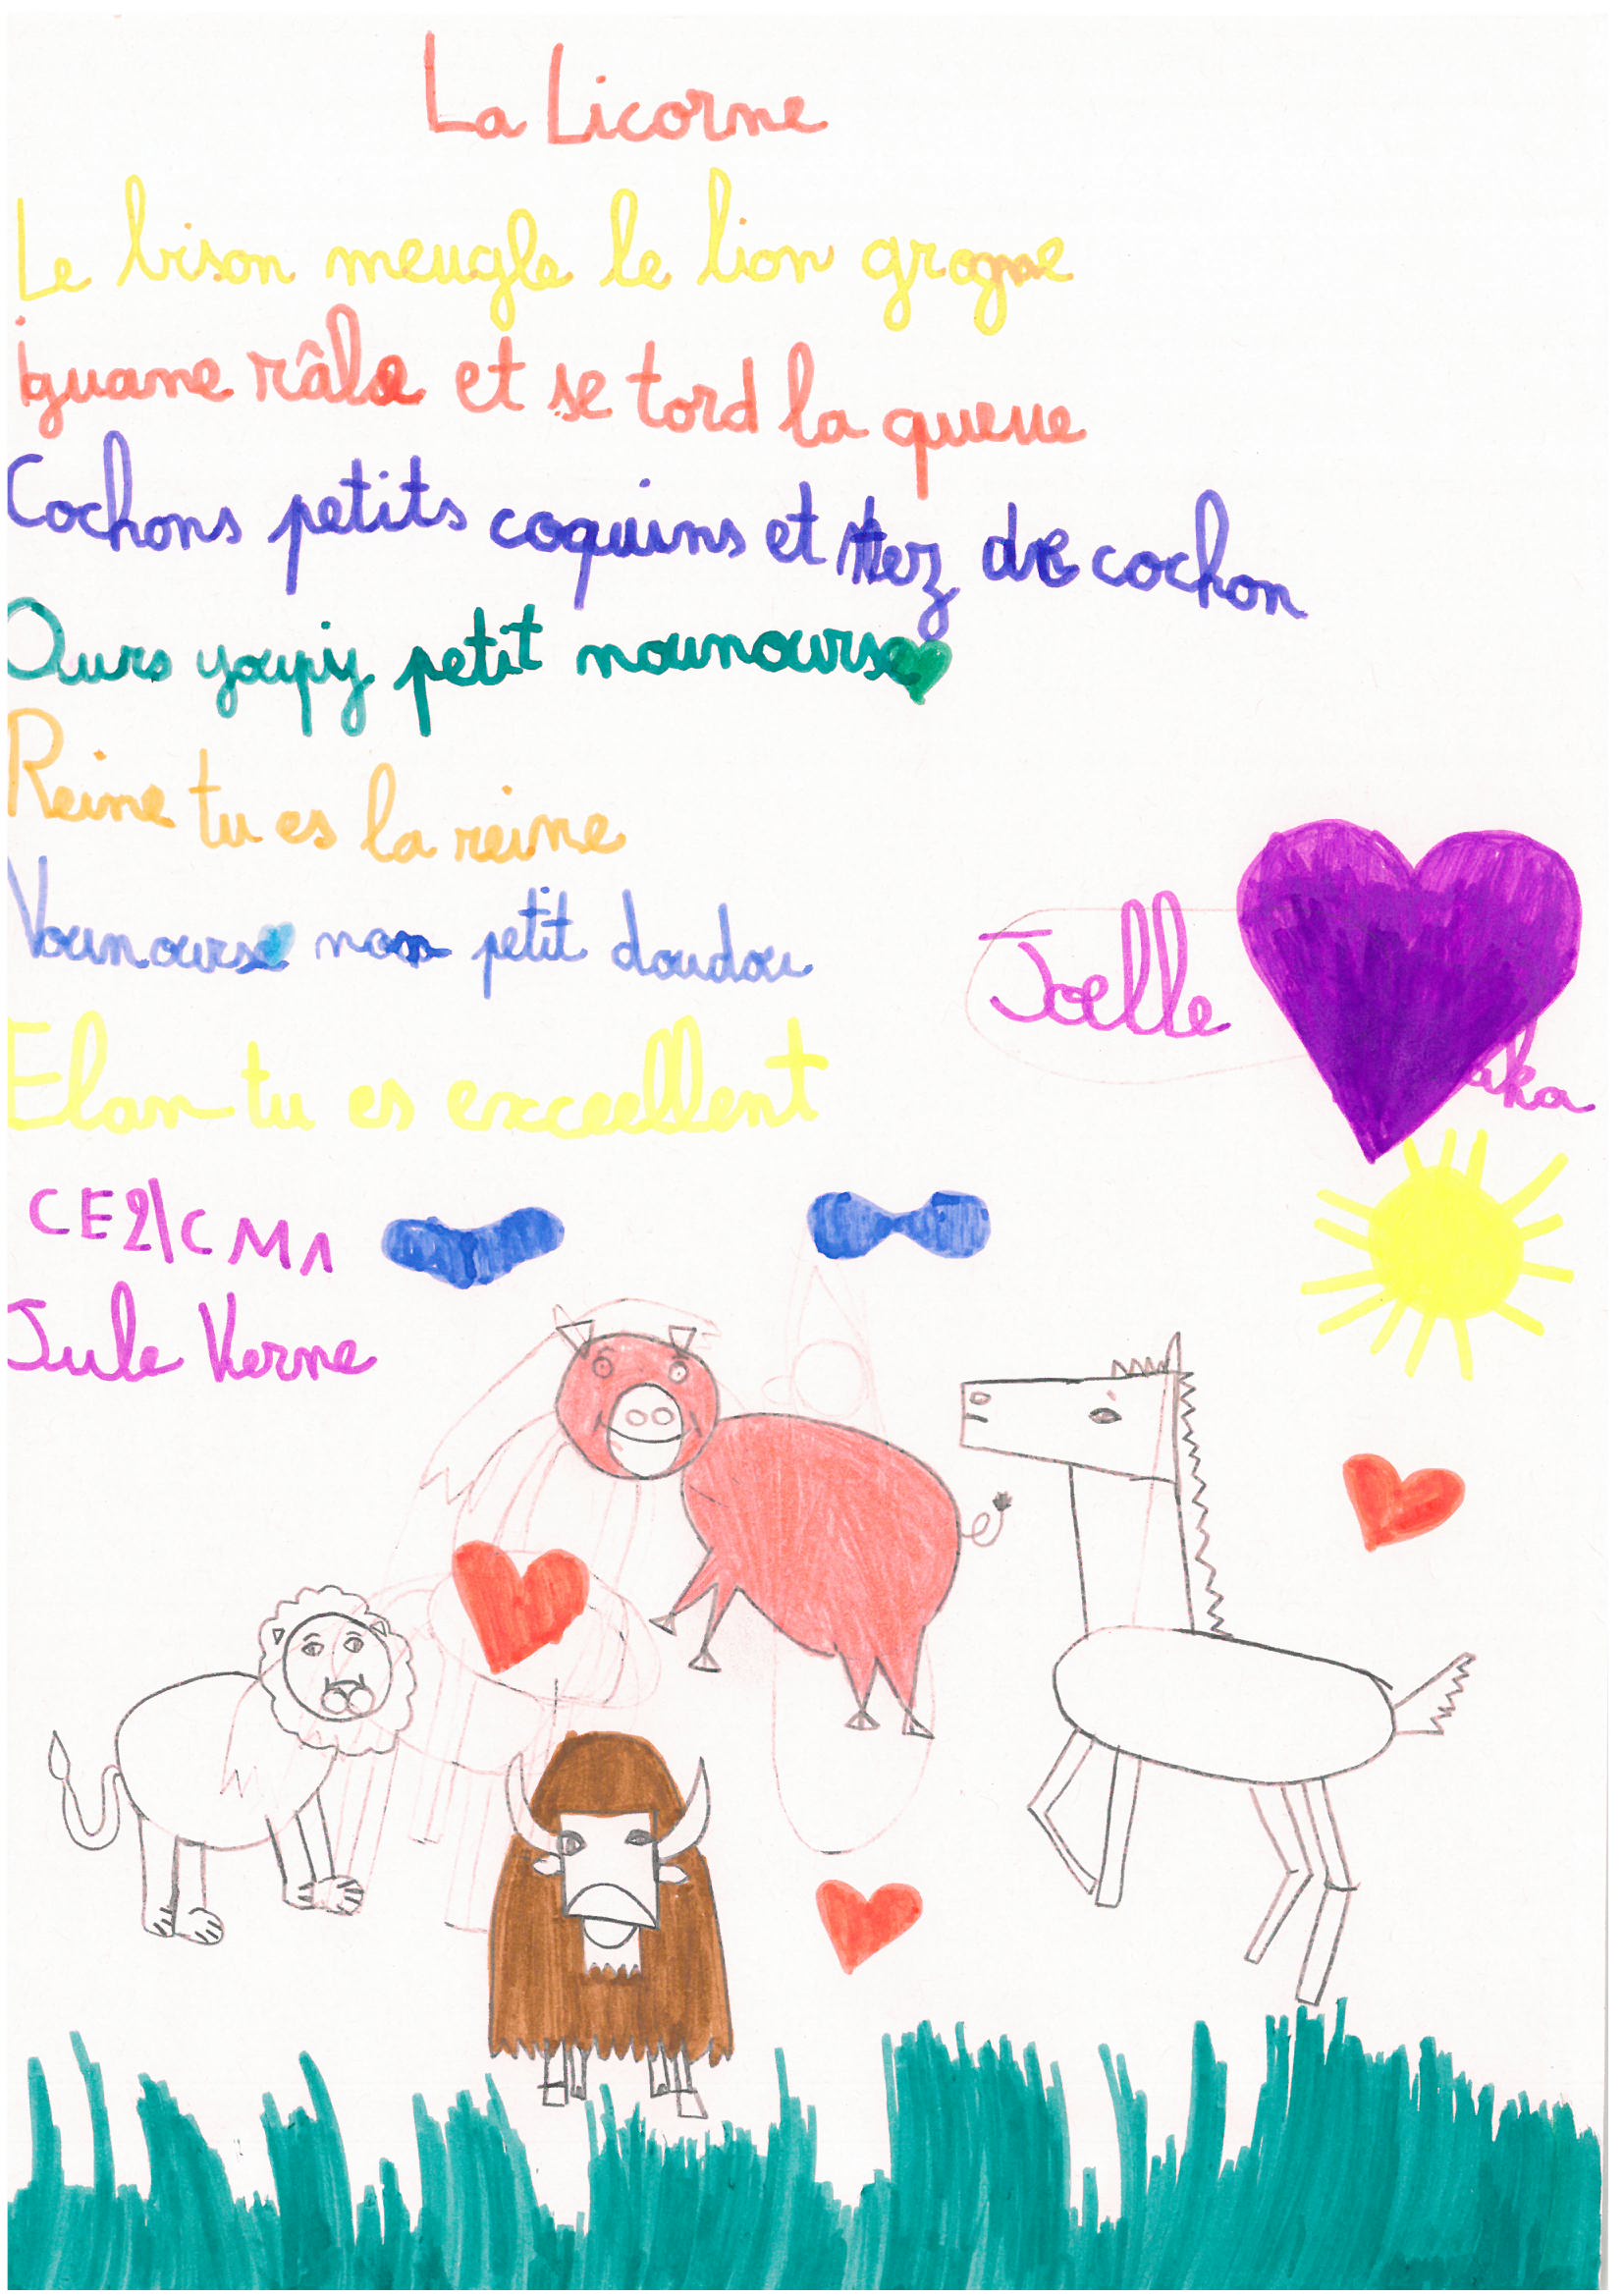 La Licorne
Le bison meugle le lion grogne
iguane râle et se tord la queue
Cochons petits coquins et nez de cochon
Ours youpiy petit nounours
Reine tu es la reine
Nounours mon petit doudou
Elan tu es exceellent
Joelle
CE2\CM1
Jule Verne